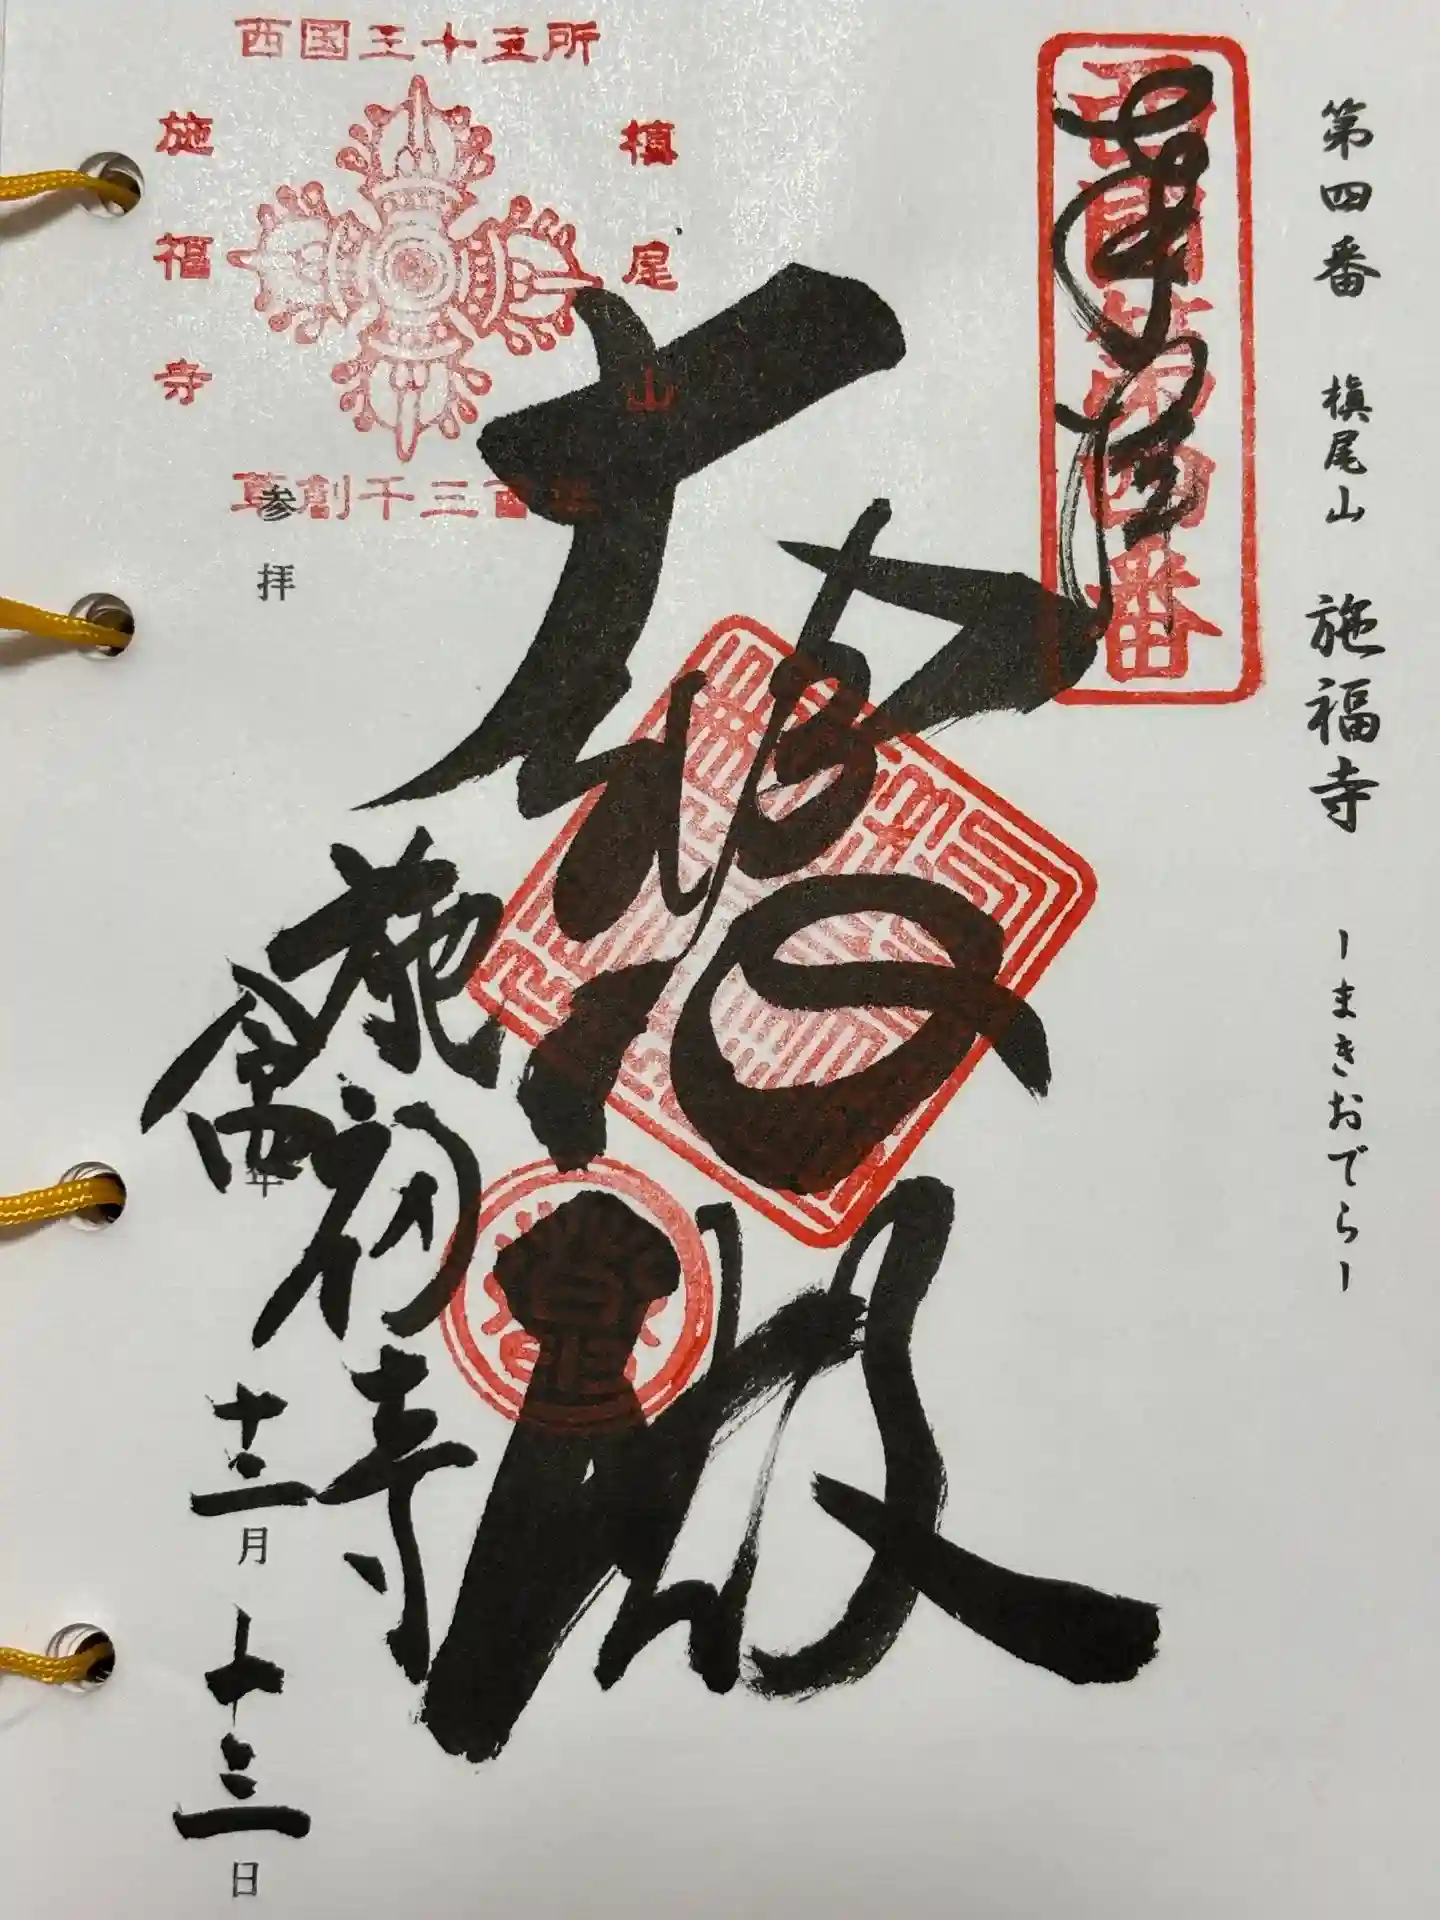 第四番 槇尾山 施福寺 ーまきおでらー
西国第四番
奉拝
大悲殿
施福寺
西国三十三所
槇尾山
施福寺
草創千三百年
参拝
令四年十二月十三日